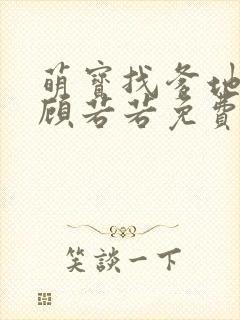 萌寶找爹地
顧若若免費
笑談一下